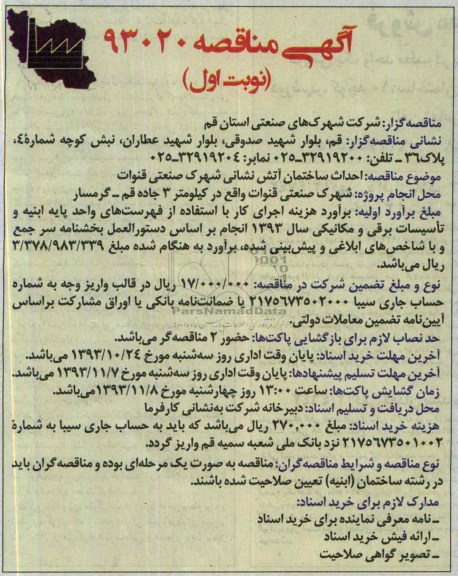 آگهی مناقصه ۹۳۰۲۰
(نوبت اول)
مناقصه‌گزار: شرکت شهرک‌های صنعتی استان قم
نشانی مناقصه‌گزار: قم، بلوار شهید صدوقی، بلوار شهید عطاران، نبش کوچه شماره٤،
پلاک۳٦ ـ تلفن: ۳۲۹۱۹۲۰۰ـ۰۲۵ نمابر: ۳۲۹۱۹۲۰٤ـ۰۲۵
موضوع مناقصه: احداث ساختمان آتش نشانی شهرک صنعتی قنوات
محل انجام پروژه: شهرک صنعتی قنوات واقع در کیلومتر ۳ جاده قم ـ گرمسار
مبلغ برآورد اولیه: برآورد هزینه اجرای کار با استفاده از فهرست‌های واحد پایه ابنیه و
تأسیسات برقی و مکانیکی سال ۱۳۹۳ انجام بر اساس دستورالعمل بخشنامه سر جمع
و با شاخص‌های ابلاغی و پیش‌بینی شده، برآورد به هنگام شده مبلغ ۳/۳۷۸/۹۸۳/۳۳۹
ریال می‌باشد.
نوع و مبلغ تضمین شرکت در مناقصه: ۱۷/۰۰۰/۰۰۰ ریال در قالب واریز وجه به شماره
حساب جاری سیبا ۲۱۷۵٦۷۳۵۰۲۰۰۰ یا ضمانت‌نامه بانکی یا اوراق مشارکت براساس
آیین‌نامه تضمین معاملات دولتی.
ParsNamadData
حد نصاب لازم برای بازگشایی پاکت‌ها: حضور ۲ مناقصه‌گر می‌باشد.
آخرین مهلت خرید اسناد: پایان وقت اداری روز سه‌شنبه مورخ ۱۳۹۳/۱۰/۲٤ می‌باشد.
آخرین مهلت تسلیم پیشنهادها: پایان وقت اداری روز سه‌شنبه مورخ ۱۳۹۳/۱۱/۷ می‌باشد.
زمان گشایش پاکت‌ها: ساعت ۱۳:۰۰ روز چهارشنبه مورخ ۱۳۹۳/۱۱/۸ می‌باشد.
محل دریافت و تسلیم اسناد: دبیرخانه شرکت به‌نشانی کارفرما
هزینه خرید اسناد: مبلغ ۲۷۰,۰۰۰ ریال می‌باشد که باید به حساب جاری سیبا به شماره
۲۱۷۵٦۷۳۵۰۱۰۰۲ نزد بانک ملی شعبه سمیه قم واریز گردد.
نوع مناقصه و شرایط مناقصه‌گران: مناقصه به صورت یک مرحله‌ای بوده و مناقصه‌گران باید
در رشته ساختمان (ابنیه) تعیین صلاحیت شده باشند.
مدارک لازم برای خرید اسناد:
ـ نامه معرفی نماینده برای خرید اسناد
ـ ارائه فیش خرید اسناد
ـ تصویر گواهی صلاحیت